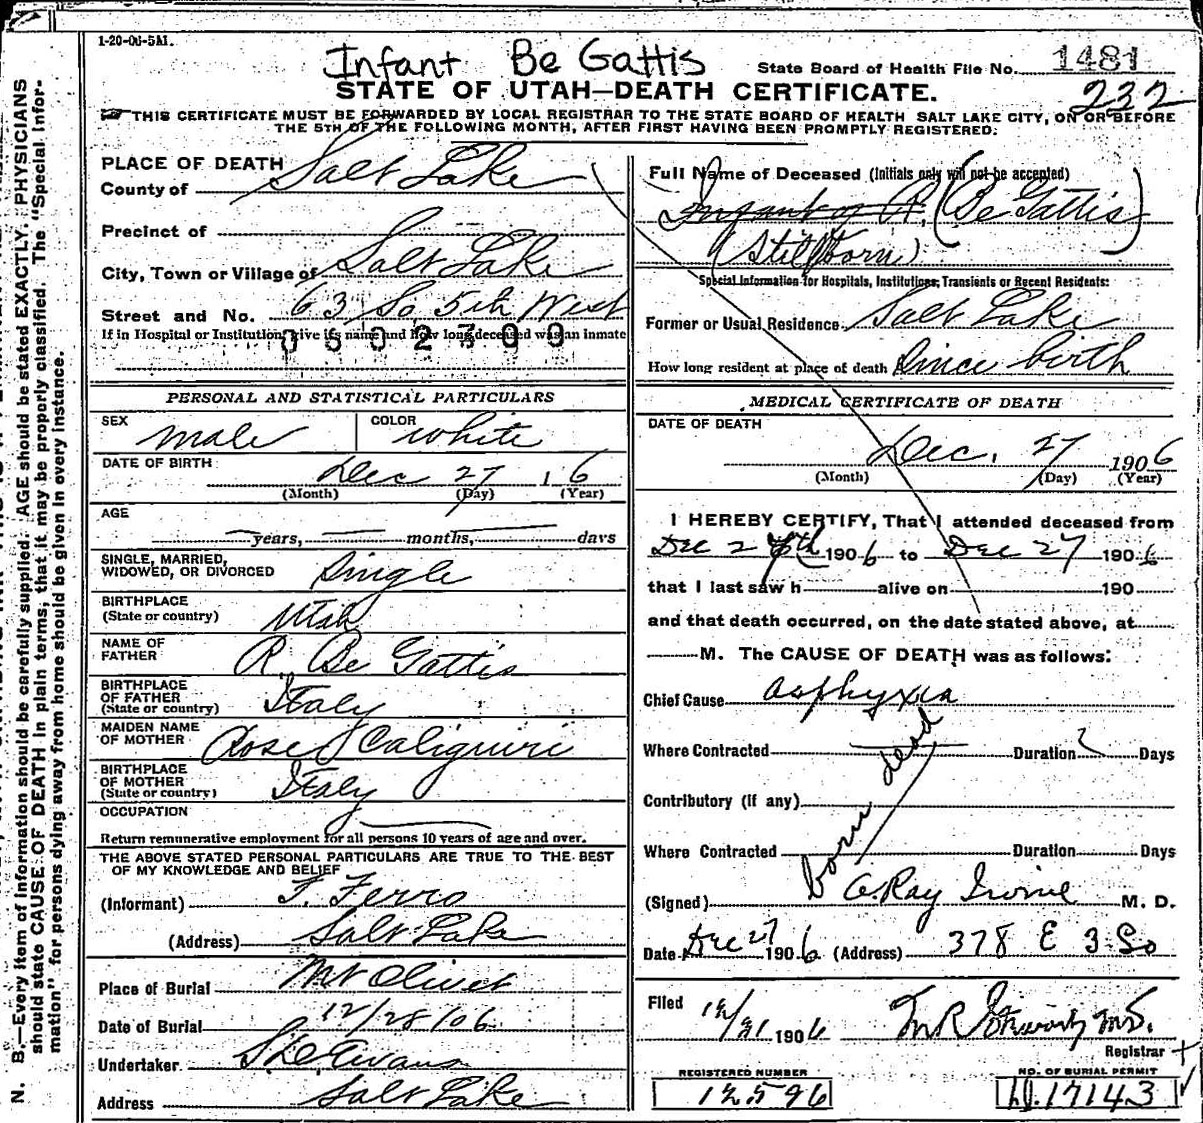 1-20-06-5M.
Infant Be Gattis
State Board of Health File No. 1481
STATE OF UTAH—DEATH CERTIFICATE.
232
THIS CERTIFICATE MUST BE FORWARDED BY LOCAL REGISTRAR TO THE STATE BOARD OF HEALTH SALT LAKE CITY, ON OR BEFORE
THE 5TH OF THE FOLLOWING MONTH, AFTER FIRST HAVING BEEN PROMPTLY REGISTERED.
N. B.—Every item of information should be carefully supplied. AGE should be stated EXACTLY. PHYSICIANS
should state CAUSE OF DEATH in plain terms, that it may be properly classified. The "Special Infor-
mation" for persons dying away from home should be given in every instance.
PLACE OF DEATH
County of Salt Lake
Precinct of
City, Town or Village of Salt Lake
Street and No. 63 So 5th West
If in Hospital or Institution, give its name and how long deceased was an inmate
0502309
PERSONAL AND STATISTICAL PARTICULARS
SEX male COLOR white
DATE OF BIRTH Dec 27 1 6
(Month) (Day) (Year)
AGE
years, months, days
SINGLE, MARRIED,
WIDOWED, OR DIVORCED Single
BIRTHPLACE
(State or country) Utah
NAME OF
FATHER R. Be Gattis
BIRTHPLACE
OF FATHER
(State or country) Italy
MAIDEN NAME
OF MOTHER Rose Caliguiri
BIRTHPLACE
OF MOTHER
(State or country) Italy
OCCUPATION
Return remunerative employment for all persons 10 years of age and over.
THE ABOVE STATED PERSONAL PARTICULARS ARE TRUE TO THE BEST
OF MY KNOWLEDGE AND BELIEF
(Informant) F. Ferro
(Address) Salt Lake
Place of Burial Mt Olivet
Date of Burial 12/28/06
Undertaker S.D. Evans
Address Salt Lake
Full Name of Deceased (Initials only will not be accepted)
Infant of R. (Be Gattis)
(Stillborn)
Special Information for Hospitals, Institutions, Transients or Recent Residents:
Former or Usual Residence Salt Lake
How long resident at place of death Since birth
MEDICAL CERTIFICATE OF DEATH
DATE OF DEATH
Dec. 27 1906
(Month) (Day) (Year)
I HEREBY CERTIFY, That I attended deceased from
Dec 27th 1906 to Dec 27 1906
that I last saw h alive on 190
and that death occurred, on the date stated above, at
M. The CAUSE OF DEATH was as follows:
Chief Cause asphyxia
Where Contracted Duration ? Days
Contributory (if any)
born dead
Where Contracted Duration Days
(Signed) A. Ray Irvine M. D.
Date Dec 27 1906 (Address) 378 E 3 So
Filed 12/31 1906 M R Stewart M.D.
Registrar
REGISTERED NUMBER
12596
NO. OF BURIAL PERMIT
D.17143